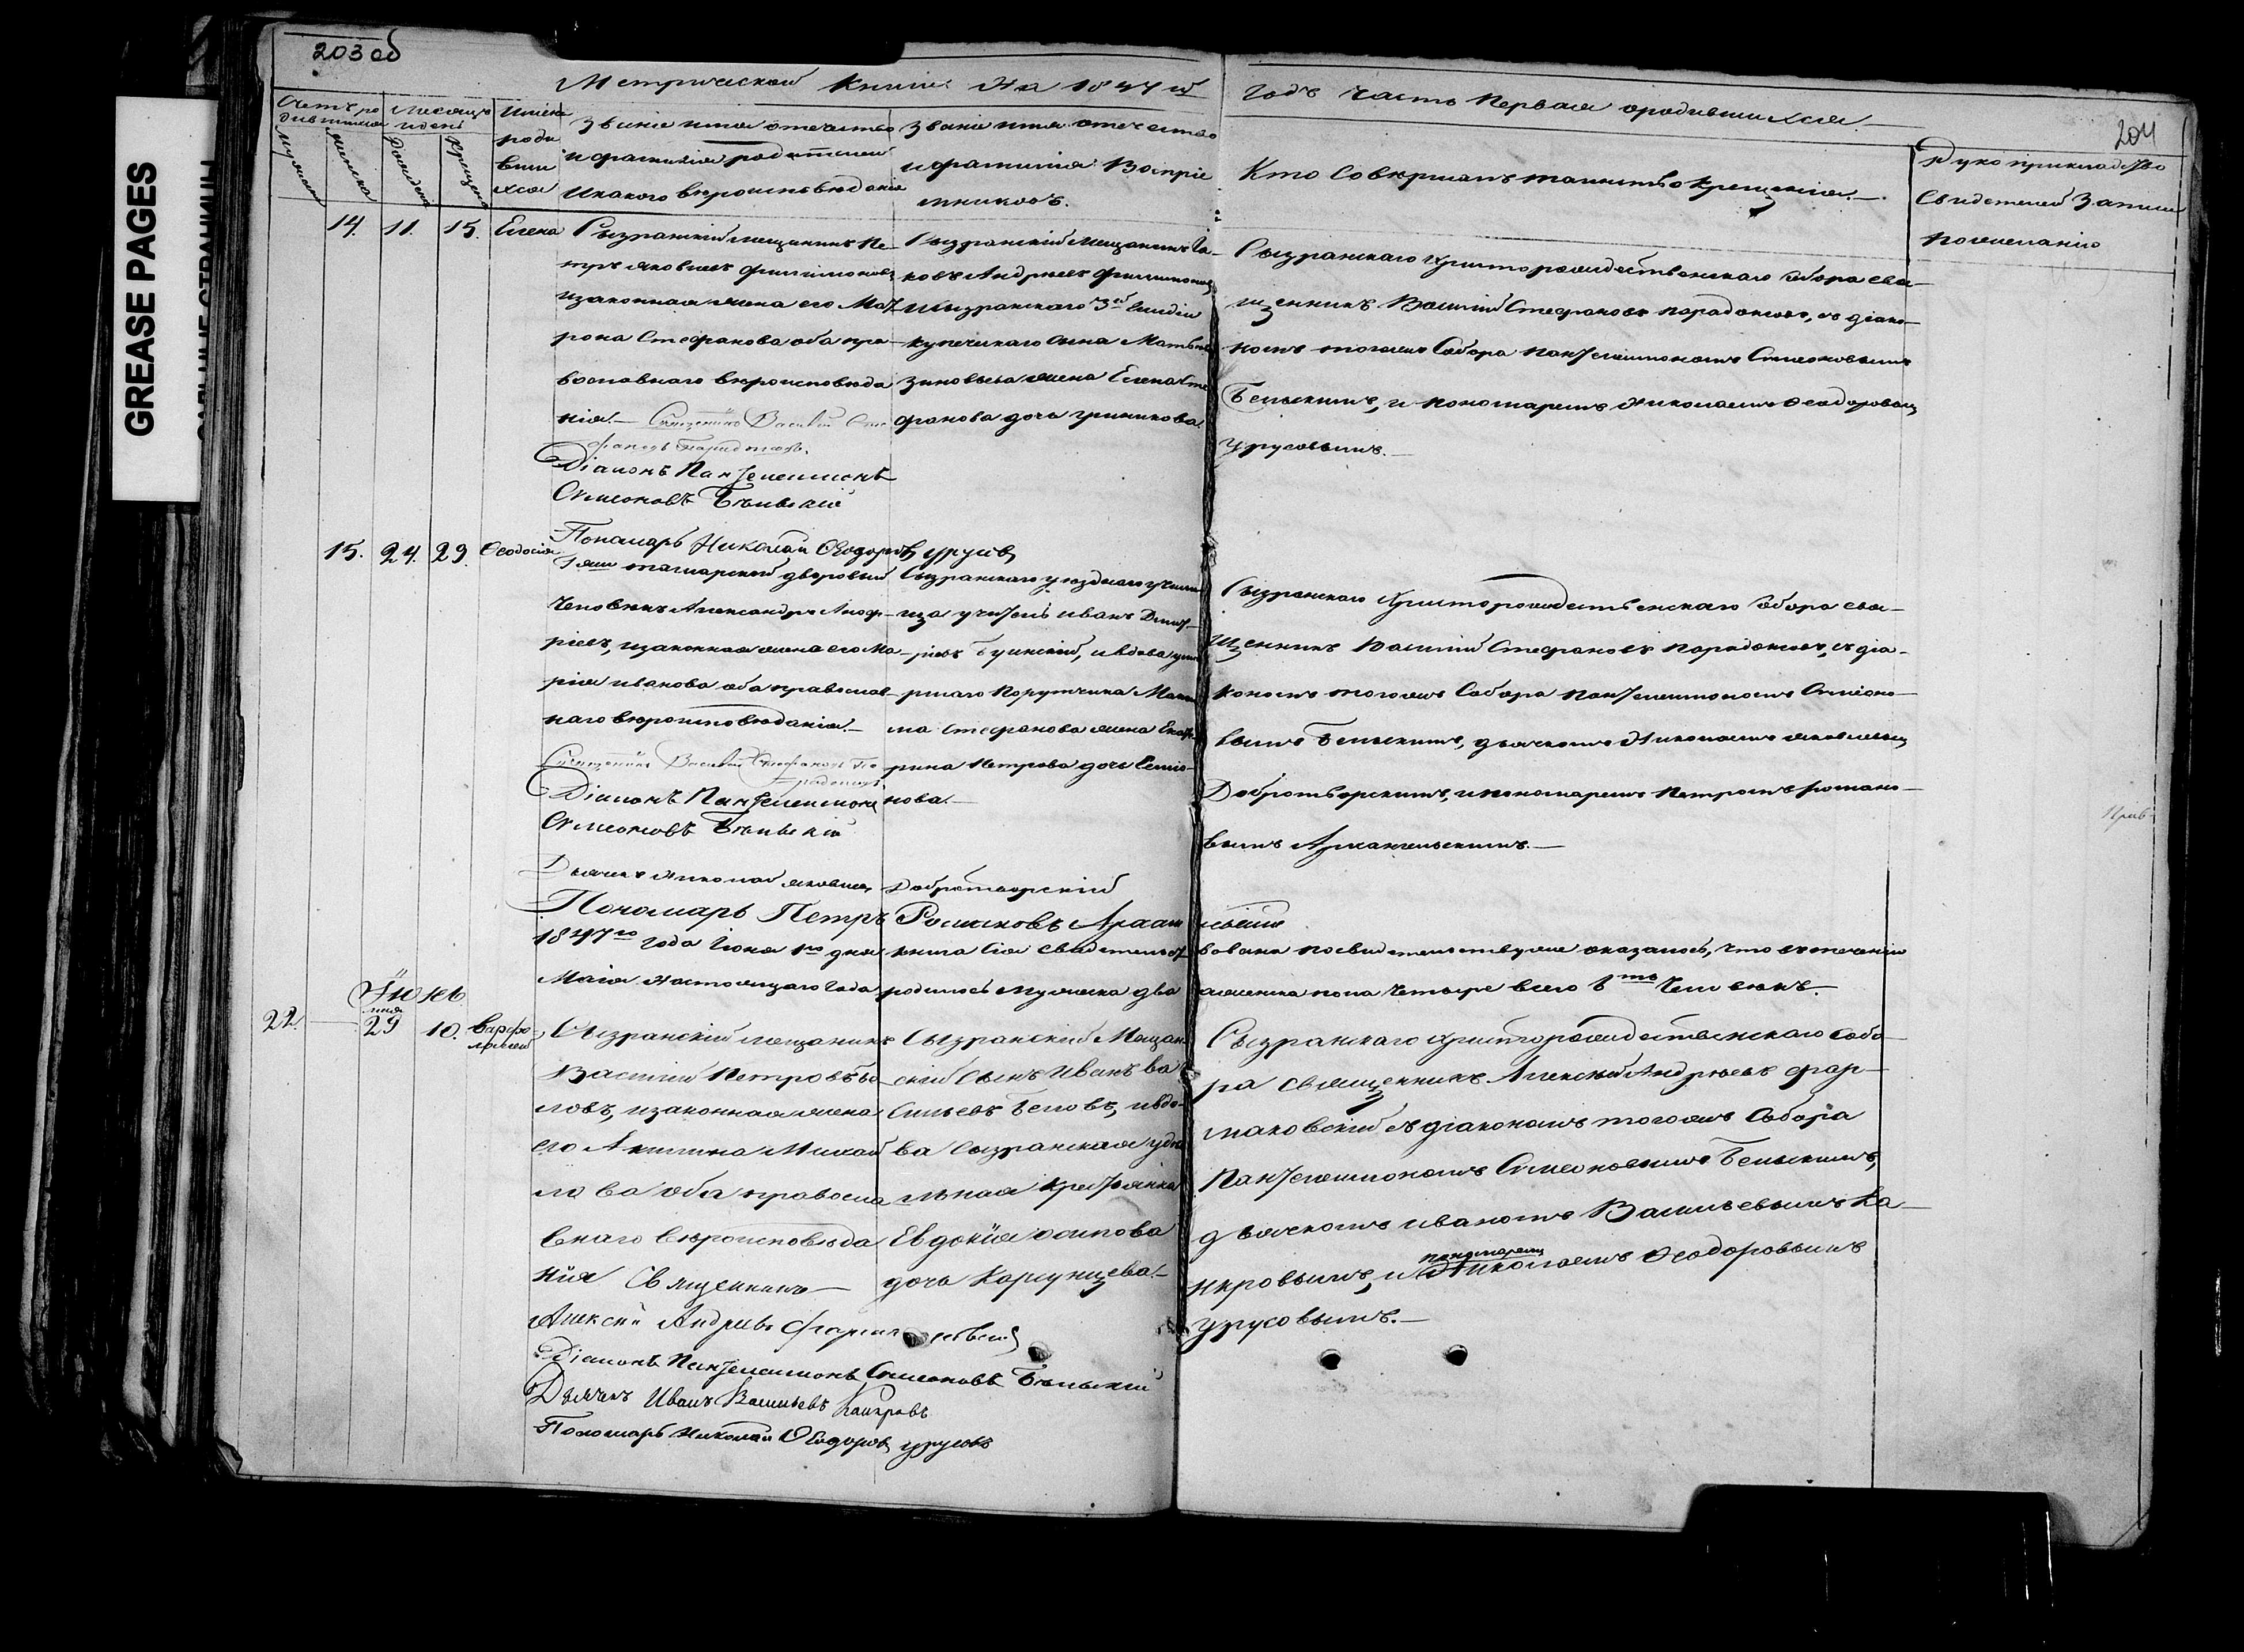 GREASE PAGES
203 об
204
Метрической книги на 1847й
Годъ часть первая о родившихся.
Счетъ ро
дившихся
Мужска
Женска
Месяцъ
и день
Рожденiя
Крещенiя
Имена
роди
вши
хся
Званiе имя отечество
и фамилiя родителей
и какого вѣроисповѣданiя
Званiе имя отечество
и фамилiя Воспрiе
мниковъ.
Кто совершалъ таинство крещенiя.
Рукоприкладство
свидетелей записи
по желанiю
14. 11. 15. Елена
Сызранскiй мещанинъ Пе-
тръ Яковлевъ Филимоновъ
и законная жена его Мат
рона Стефанова оба пра-
вославнаго вѣроисповѣда
нiя. — Священникъ Василiй Сте
фановъ Парадоксовъ.
Дiаконъ Пантелеимонъ
Симеоновъ Бѣльскiй
Пономарь Николай Ѳеодоровъ Урусовъ
Сызранскiй мещанинъ Iа-
ковъ Андреевъ Филимоновъ
и Сызранскаго 3й гильдiи
купеческаго сына Матвея
Зиновьева жена Елена Сте
фанова дочь
Сызранскаго Христорождественскаго собора свя-
щенникъ Василiй Стефановъ Парадоксовъ, съ дiако-
номъ тогожъ Собора Пантелеимономъ Симеоновымъ
Бельскимъ, и пономаремъ Николаемъ Ѳеодоровымъ
Урусовымъ. —
15. 24. 29. Ѳеодосiя
дворовый
человекъ Александръ Аноф-
рiевъ, и законная жена его Ма-
рiя Иванова оба православ-
наго вѣроисповѣданiя. —
Священникъ Василiй Стефановъ Па-
радоксовъ
Дiаконъ Пантелеимонъ
Симеоновъ Бѣльскiй
Дьячекъ Николай Яковлевъ Добротворскiй
Пономарь Петръ Романовъ Архангельскiй
Сызранскаго уезднаго учили
ща учитель Иванъ Дмит-
рiевъ Буинскiй, и вдова уме
ршаго Порутчика Макси
ма Стефанова жена Екате-
рина Петрова дочь Семио-
нова. —
Сызранскаго Христорождественскаго собора свя-
щенникъ Василiй Стефановъ Парадоксовъ, съ дiа-
кономъ тогожъ Собора Пантелеимономъ Симеоно-
вымъ Бельскимъ, дьячкомъ Николаемъ Яковлевымъ
Добротворскимъ, и пономаремъ Петромъ Романо-
вымъ Архангельскимъ. —
1847го года Iюня 1го дня книга сiя свидетельст вована по свидетельству же оказалось, что въ теченiи
Маiя настоящаго года родилось мужеска два женска пола четыре всего 6ть человекъ. —
Iюнь
22. — 29 10. Варфо-
ломей
Сызранскiй мещанинъ
Василiй Петровъ Бе
ловъ, и законная жена
его Акилина Михай
лова оба правосла
внаго вѣроисповѣда
нiя Священникъ —
Алексiй Андреевъ Фармаковскiй
Дiаконъ Пантелеимонъ Симеоновъ Бѣльскiй
Дьячекъ Иванъ Васильевъ Каикровъ
Пономарь Николай Ѳеодоровъ Урусовъ
Сызранскiй Мещан
скiй сынъ Иванъ Ва
сильевъ Беловъ, и вдо-
ва Сызранская уде
льная крестьянка
Евдокiя Осипова
дочь Каргунцева. —
Сызранскаго Христорождественскаго собо-
ра священникъ Алексѣй Андреевъ Фар-
маковскiй съ дiакономъ тогожъ Собора
Пантелеимономъ Симеоновымъ Бельскимъ,
дьячкомъ Иваномъ Васильевымъ Ка-
икровымъ, и пономаремъ Николаемъ Ѳеодоровымъ
Урусовымъ. —